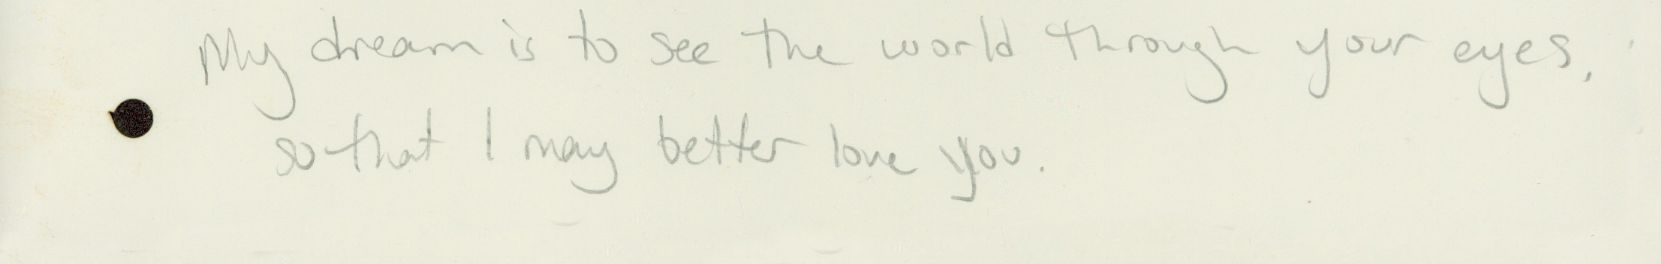 My dream is to see the world through your eyes,
so that I may better love you.